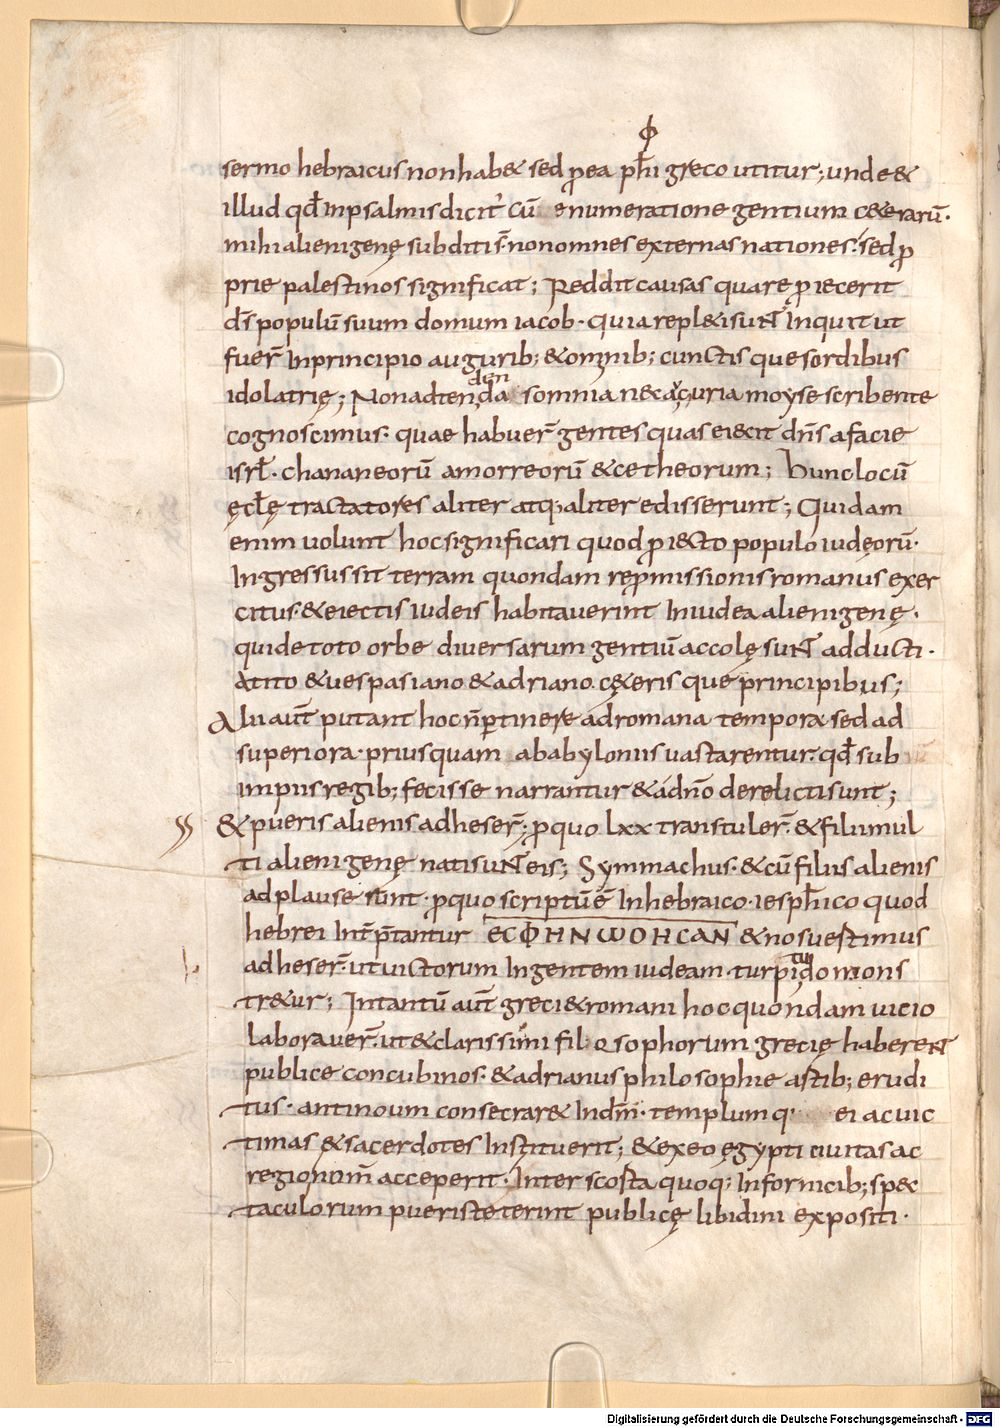 ϕ
sermo hebraicus non hab& sed p̄ ea p̄hi greco utitur; unde &
illud qd̄ in psalmis dicit̄ cū enumeratione gentium c&erarū.
mihi alienigenę subditi s̄. non omnes externas nationes. sed ꝓ
prie palestinos significat; Reddit causas quare ꝓiecerit
ds̄ populū suum domum iacob. quia repl&i sunt inquit ut
fuer̄ in principio augurib; & omnib; cunctis que sordibus
den
idolatrię; Non adtenda somnia nec auguria moyse scribente
cognoscimus. quae habuer̄ gentes quas eiecit dns̄ a facie
isrl̄. chananeorū amorreorū & cetheorum; hunc locū
ęclę tractatores aliter atq; aliter edisserunt; Quidam
enim uolunt hoc significari quod ꝓiecto populo iudęorū.
Ingressus sit terram quondam repromissionis romanus exer
citus. & eiectis iudeis habitauerint in iudea alienigenę.
qui de toto orbe diuersarum gentiū accolę sunt adducti.
A tito & uespasiano & adriano. c&eris que principibus;
Alii aut̄ putant hoc n̄ ꝑtinere ad romana tempora sed ad
superiora. priusquam a babyloniis uastarentur. qd̄ sub
impiis regib; fecisse narrantur & a dn̄o derelicti sunt;
& pueris alienis adheser̄; ꝓ quo lxx transtuler̄. & filii mul
ti alienigenę nati sunt eis; Symmachus. & cū filiis alienis
adplause sunt. ꝓ quo scriptū ē in hebraico. iesphico quod
hebrei int̄p̄tantur ЄCΦHNωOHCAN & nos uestimus
tu
adheser̄. ut uictorum ingentem iudeam. turpido mons
tr&ur; In tantū aut̄ greci & romani hoc quondam uicio
laborauer̄. ut & clarissimi filosophorum grecię haberent
publice concubinos. & adrianus philosophie astib; erudi
tus. antinoum consecrar& in dm̄. templum q. ei ac uic
timas & sacerdotes instituerit; & ex eo ęgypti ciuitas ac
regio nom̄ acceperit. Inter scosta quoq; in fornicib; spec
taculorum pueri steterint publicę libidini expositi.
Digitalisierung gefördert durch die Deutsche Forschungsgemeinschaft - DFG